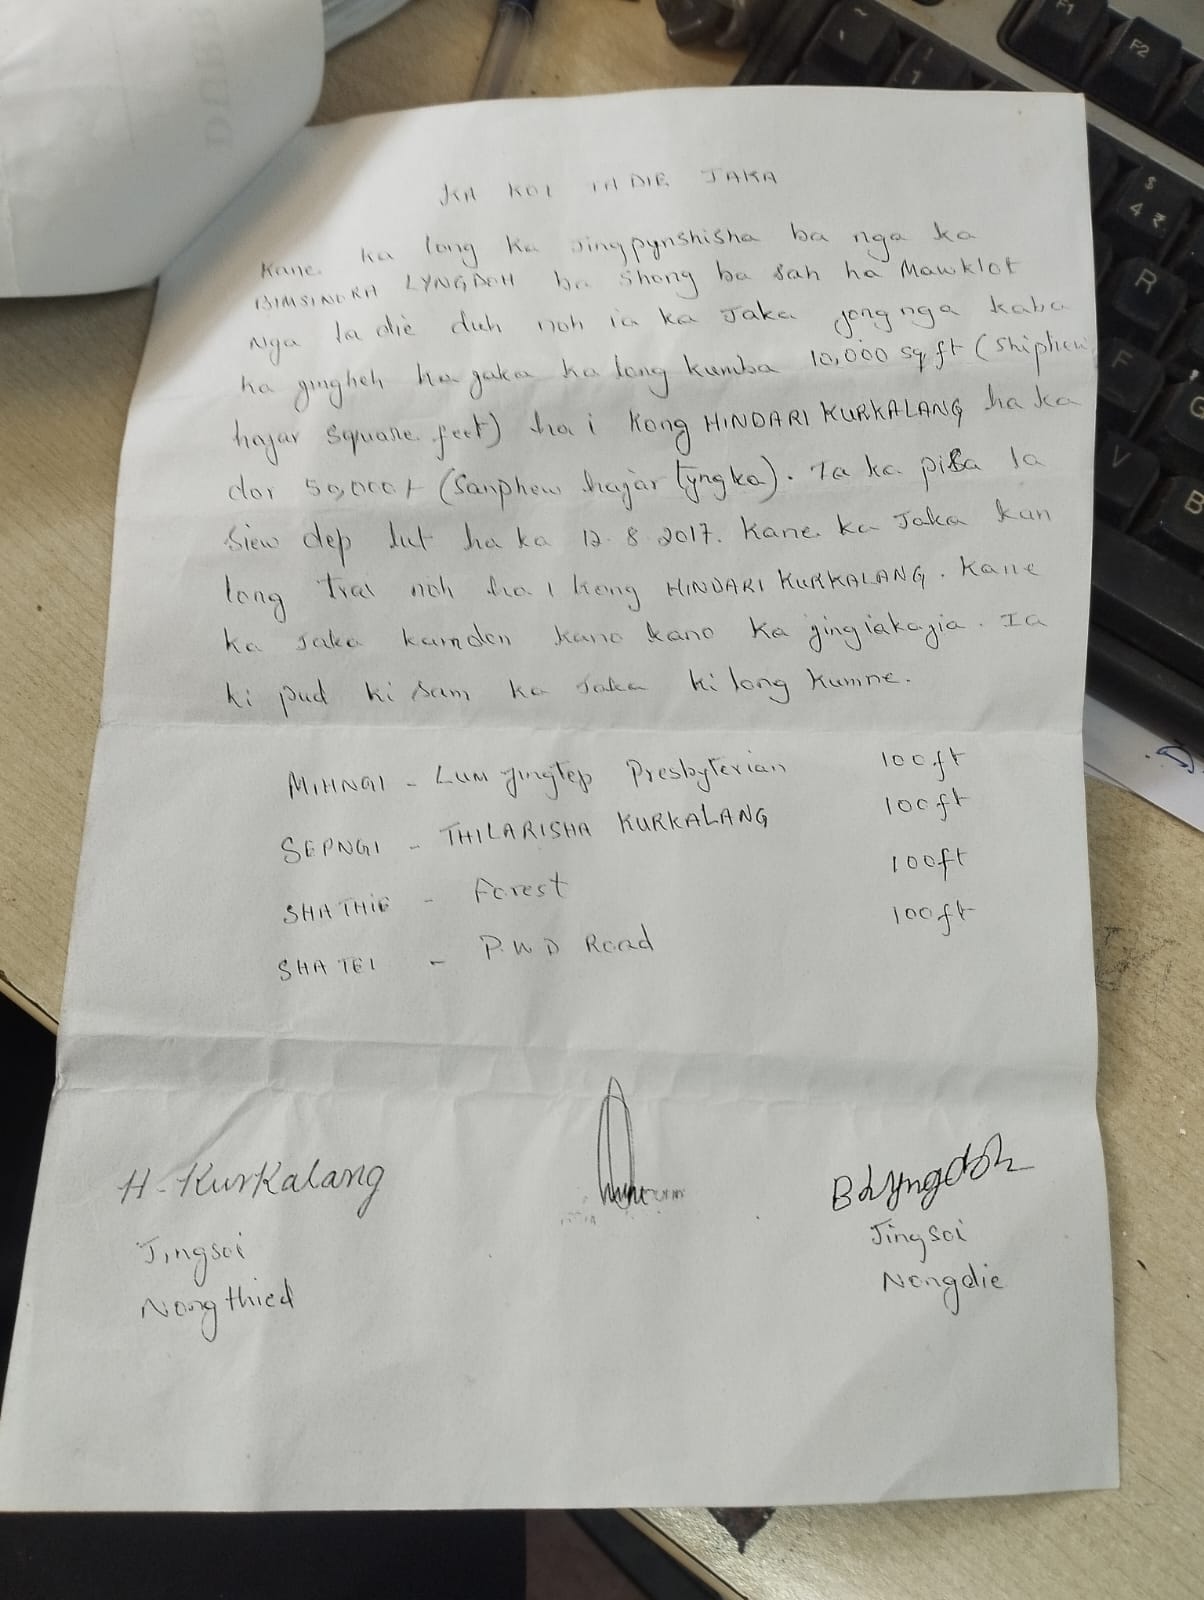 KA KOT IA DIE JAKA
Kane ka long ka Jingpynshisha ba nga ka
BIMSINORA LYNGDOH ba shong ba sah ha Mawklot
Nga la die duh noh ia ka Jaka jong nga kaba
ka jingheh ka jaka ka long kumba 10,000 sq ft (shiphew
hajar square feet) ha i Kong HINDARI KURKALANG ha ka
dor 50,000/- (sanphew hajar tyngka). Ia ka pisa la
siew dep lut ha ka 12.8.2017. Kane ka Jaka kan
long trai noh ha i kong HINDARI KURKALANG. Kane
ka Jaka kamdon kano kano ka jingiakajia. Ia
ki pud ki sam ka Jaka ki long kumne.
MIHNGI - LUM Jingtep Presbyterian 100ft
SEPNGI - THILARISHA KURKALANG 100ft
SHATHIE - Forest 100ft
SHATEI - P.W.D Road 100ft
H. Kurkalang
Jingsoi
Nongthied
B Lyngdoh
Jingsoi
Nongdie
F1
F2
~
1
$
4 ₹
R
F
G
V
B
D